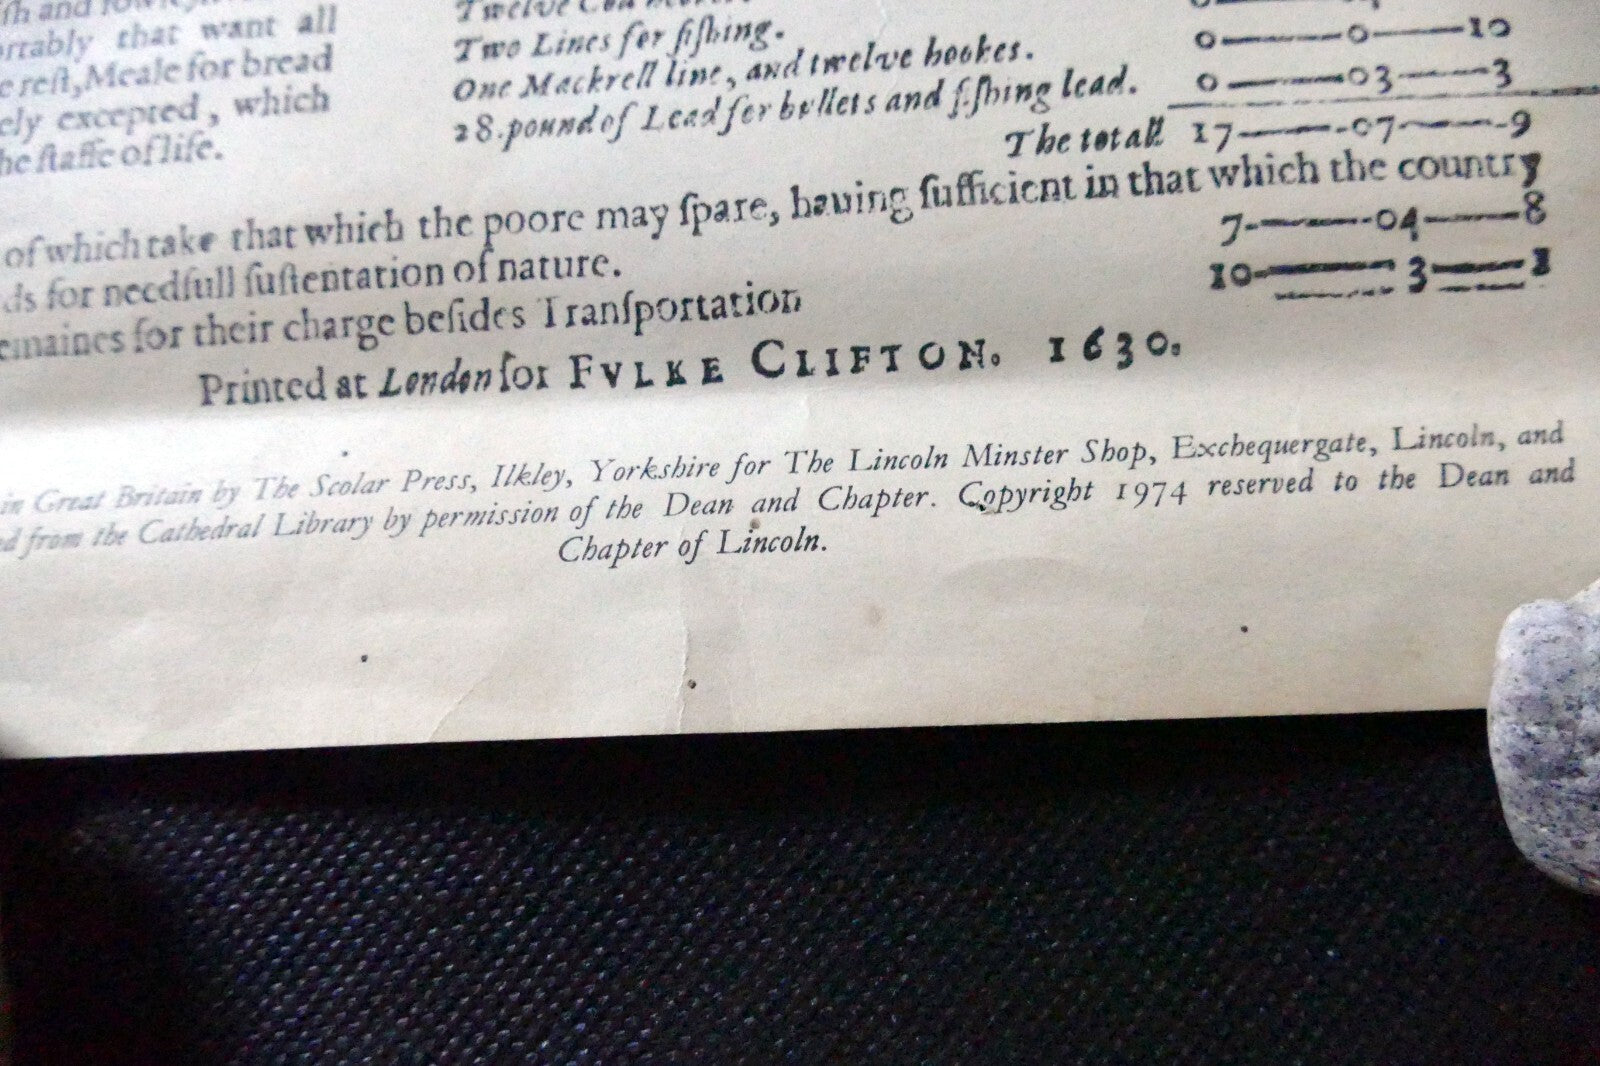 Twelve
ortably that want all
Two Lines for fiſhing. 0———0———10
reſt, Meale for bread
One Mackrell line, and twelve hookes. 0———03———3
ely excepted, which
28. pound of Lead for bullets and fiſhing lead.
he ſtaffe of life.
The totall 17———07———9
of which take that which the poore may ſpare, hauing ſufficient in that which the country
ds for needfull ſuſtentation of nature. 7———04———8
emaines for their charge beſides Tranſportation 10———3———1
Printed at London for FVLKE CLIFTON. 1630.
in Great Britain by The Scolar Press, Ilkley, Yorkshire for The Lincoln Minster Shop, Exchequergate, Lincoln, and
ed from the Cathedral Library by permission of the Dean and Chapter. Copyright 1974 reserved to the Dean and
Chapter of Lincoln.